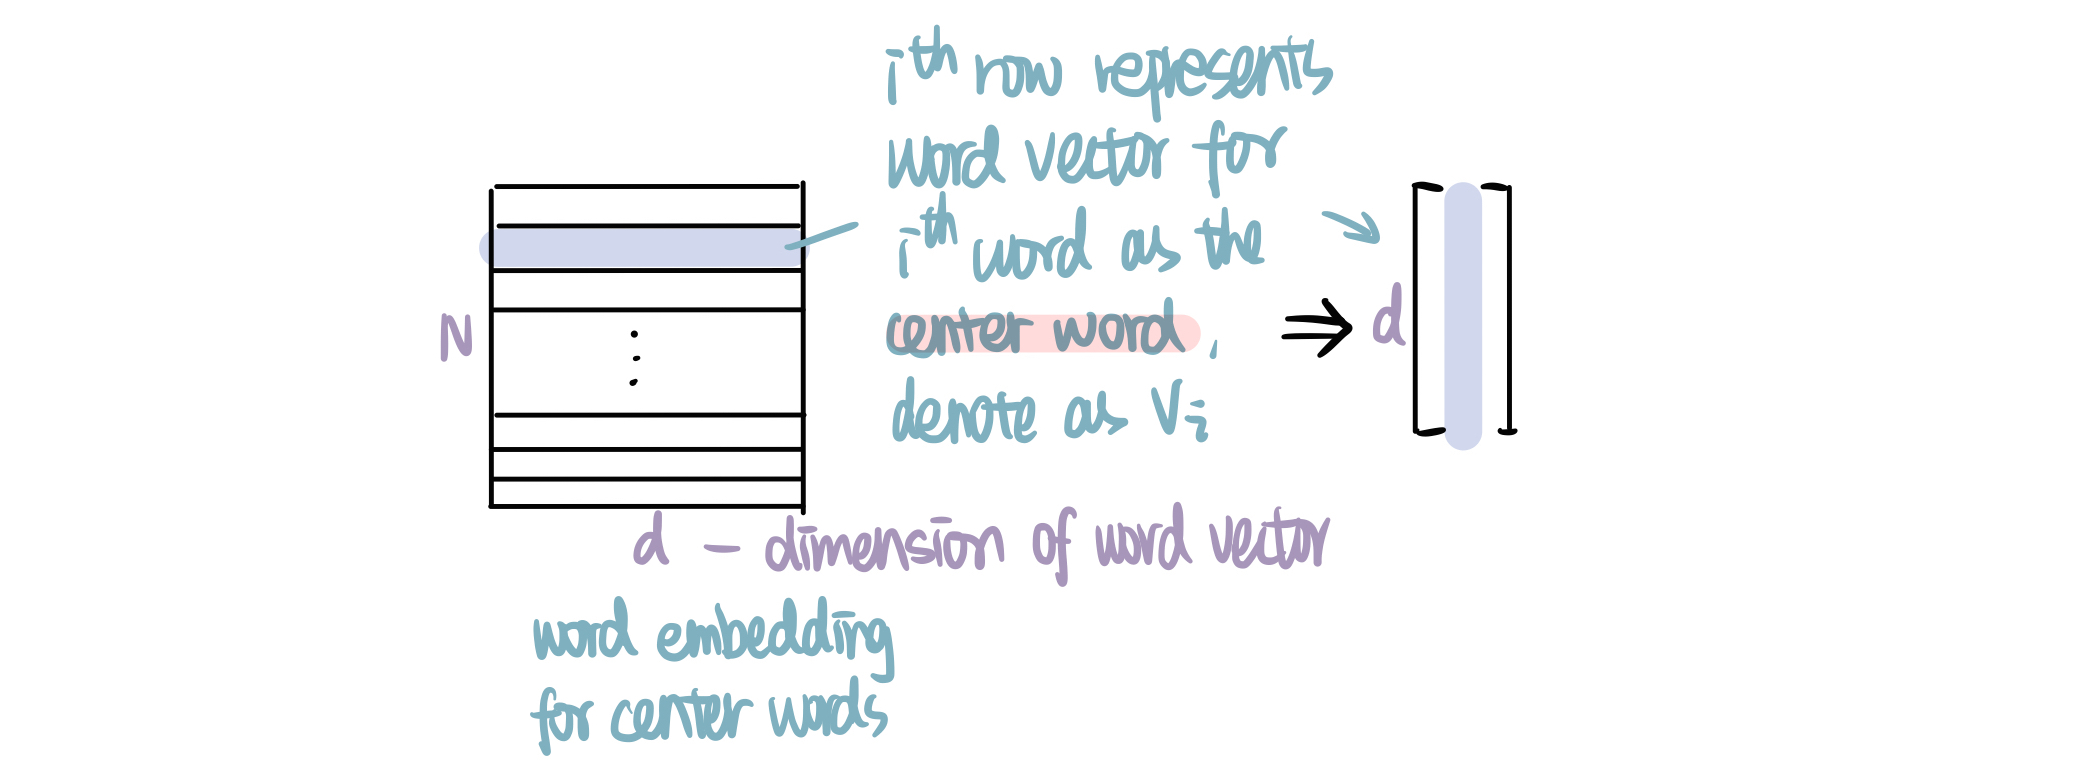 iᵗʰ row represents
word vector for
iᵗʰ word as the
center word,
denote as Vᵢ
N
d
d — dimension of word vector
word embedding
for center words